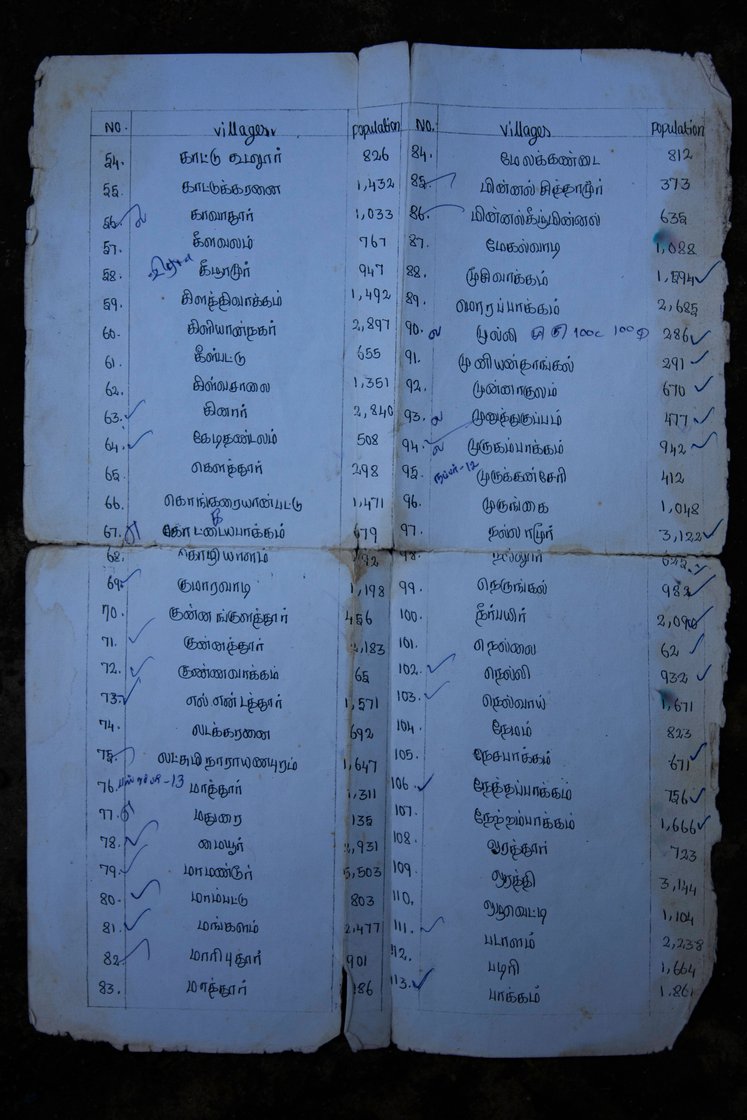 NO. Villages population
54. காட்டு கூடலூர் 826
55. காட்டுக்கரணை 1,432
56. காவாதூர் 1,033
57. கீளவலம் 767
58. கீழாமூர் 947
59. கிளத்திவாக்கம் 1,492
60. கிளியாநகர் 2,897
61. கீல்பட்டு 655
62. கிள்வசாலை 1,351
63. கினார் 2,840
64. கேடிதண்டலம் 508
65. கொளத்தூர் 298
66. கொங்கரையான்பட்டு 1,471
67. கோட்டையபாக்கம் 679
68.
69. குமாரவாடி 1,198
70. குன்னங்குளத்தூர் 456
71. குன்னத்தூர் ,183
72. குண்ணவாக்கம் 65
73. எல் எண்டத்தூர் 1,571
74. லடக்கரணை 692
75. லட்சுமி நாராயணபுரம் 1,647
76. மாத்தூர் 1,311
77. மதுரை 135
78. மையூர் ,931
79. மாமண்டூர் 5,503
80. மாம்பட்டு 803
81. மங்களம் 2,477
82. மாரிபுதூர் 901
83. மாத்தூர் 86
NO. Villages population
84. மேலக்கண்டை 812
85. மின்னல் சித்தாமூர் 373
86. மின்னல்கீழ்மின்னல் 635
87. மேகல்வாடி 1,088
88. முசிவாக்கம் 1,594
89. மொறப்பாக்கம் 2,685
90. முல்லி 286
91. முனியன்தாங்கல் 291
92. முன்னாகுலம் 670
93. முனுத்துகுப்பம் 477
94. முருகம்பாக்கம் 942
95. முருக்கன்சேரி 412
96. முருங்கை 1,048
97. நல்லாமூர் 3,122
98. நல்லூர்
99. நெருங்கல் 982
100. நீர்பயிர்
101. நெல்லை 62
102. நெல்லி 932
103. நெல்வாய் 1,671
104. நேமம் 823
105. நேசபாக்கம் 671
106. நேத்தப்பாக்கம் 756
107. நேற்றம்பாக்கம் 1,666
108. ஓரத்தூர் 723
109. ஒரத்தி 3,144
110. ஒழவெட்டி 1,104
111. படாளம் 2,238
112. படிரி 1,664
113. பாக்கம் 1,861